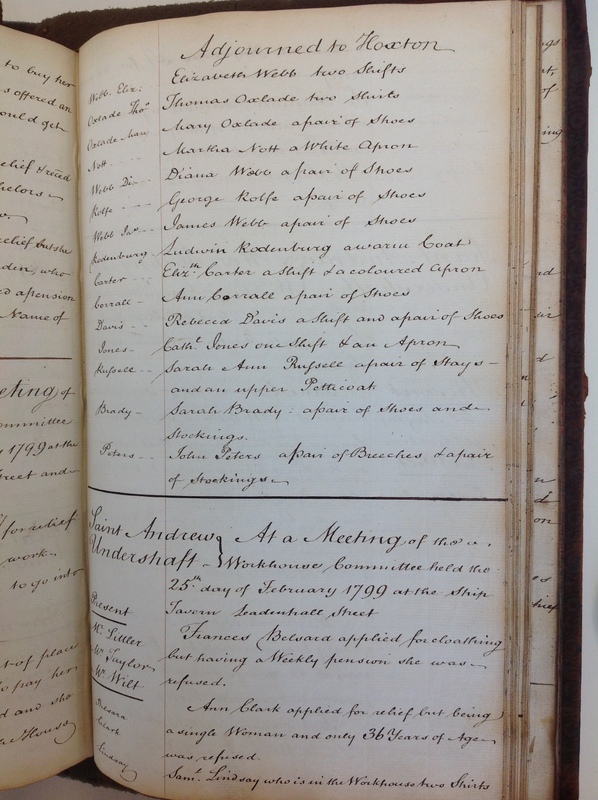 to buy her
s offered an
ould get
elief & reced
helors
relief but she
den, who
ed a pension
Name of
eeting of
ommittee
1799 at the
treet and
for relief
work.
to go into
t of place
to pay her
d and she
House
Adjourned to Hoxton
Webb Eliz: Elizabeth Webb two Shifts
Oxlade Thos Thomas Oxlade two Shirts
Oxlade Mary Mary Oxlade a pair of Shoes
Nott Martha Nott a White Apron
Webb Dia Diana Webb a pair of Shoes
Rolfe George Rolfe a pair of Shoes
Webb Jas James Webb a pair of Shoes
Rodenburg Ludwin Rodenburg a warm Coat
Carter Elizth Carter a Shift & a coloured Apron
Corrall Ann Corrall a pair of Shoes
Davis Rebecca Davis a Shift and a pair of Shoes
Jones Cathe Jones one Shift & an Apron
Russell Sarah Ann Russell a pair of Stays
and an upper Petticoat
Brady Sarah Brady a pair of Shoes and
Stockings.
Peters John Peters a pair of Breeches & a pair
of Stockings
Saint Andrew } At a Meeting of the
Undershaft Workhouse Committee held the
25th day of February 1799 at the Ship
Present Tavern Leadenhall Street
Mr Sittler Frances Belsard applied for cloathing
Mr Taylor but having a Weekly pension she was
Mr Wilt refused.
Belsard Ann Clark applied for relief but being
Clark a single Woman and only 36 Years of Age
was refused.
Lindsay Saml Lindsay who is in the Workhouse two Shirts